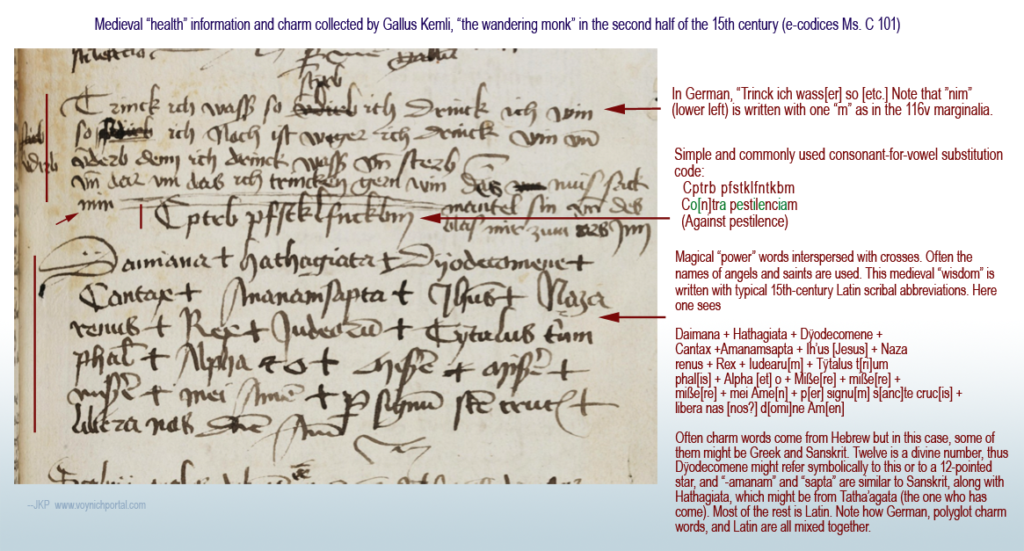 Medieval “health” information and charm collected by Gallus Kemli, “the wandering monk” in the second half of the 15th century (e-codices Ms. C 101)
Trinck ich wass so ich Drinck ich win
so ich Nach ist weger ich drinck vin vn
denn ich drinck wass vn sterb
vn dar vm das ich trincken gern win
nim
Cptrb pfstklfntkbm
Daimana + hathagiata + Dÿodecomene +
Cantax + Amanamsapta + Jhus + Naza
renus + Rex + Judeoru + Tytalus
phal + Alpha et o + misse + misse +
misse + mei Ame + p signu ste cruc +
libera nas dne Am
In German, “Trinck ich wass[er] so [etc.] Note that ”nim”
(lower left) is written with one “m” as in the 116v marginalia.
Simple and commonly used consonant-for-vowel substitution
code:
Cptrb pfstklfntkbm
Co[n]tra pestilenciam
(Against pestilence)
Magical “power” words interspersed with crosses. Often the
names of angels and saints are used. This medieval “wisdom” is
written with typical 15th-century Latin scribal abbreviations. Here
one sees
Daimana + Hathagiata + Dÿodecomene +
Cantax +Amanamsapta + Ih’us [Jesus] + Naza
renus + Rex + Iudearu[m] + Tÿtalus t[ri]um
phal[is] + Alpha [et] o + Miße[re] + miße[re] +
miße[re] + mei Ame[n] + p[er] signu[m] s[anc]te cruc[is] +
libera nas [nos?] d[omi]ne Am[en]
Often charm words come from Hebrew but in this case, some of
them might be Greek and Sanskrit. Twelve is a divine number, thus
Dÿodecomene might refer symbolically to this or to a 12-pointed
star, and “-amanam” and “sapta” are similar to Sanskrit, along with
Hathagiata, which might be from Tatha’agata (the one who has
come). Most of the rest is Latin. Note how German, polyglot charm
words, and Latin are all mixed together.
–JKP www.voynichportal.com